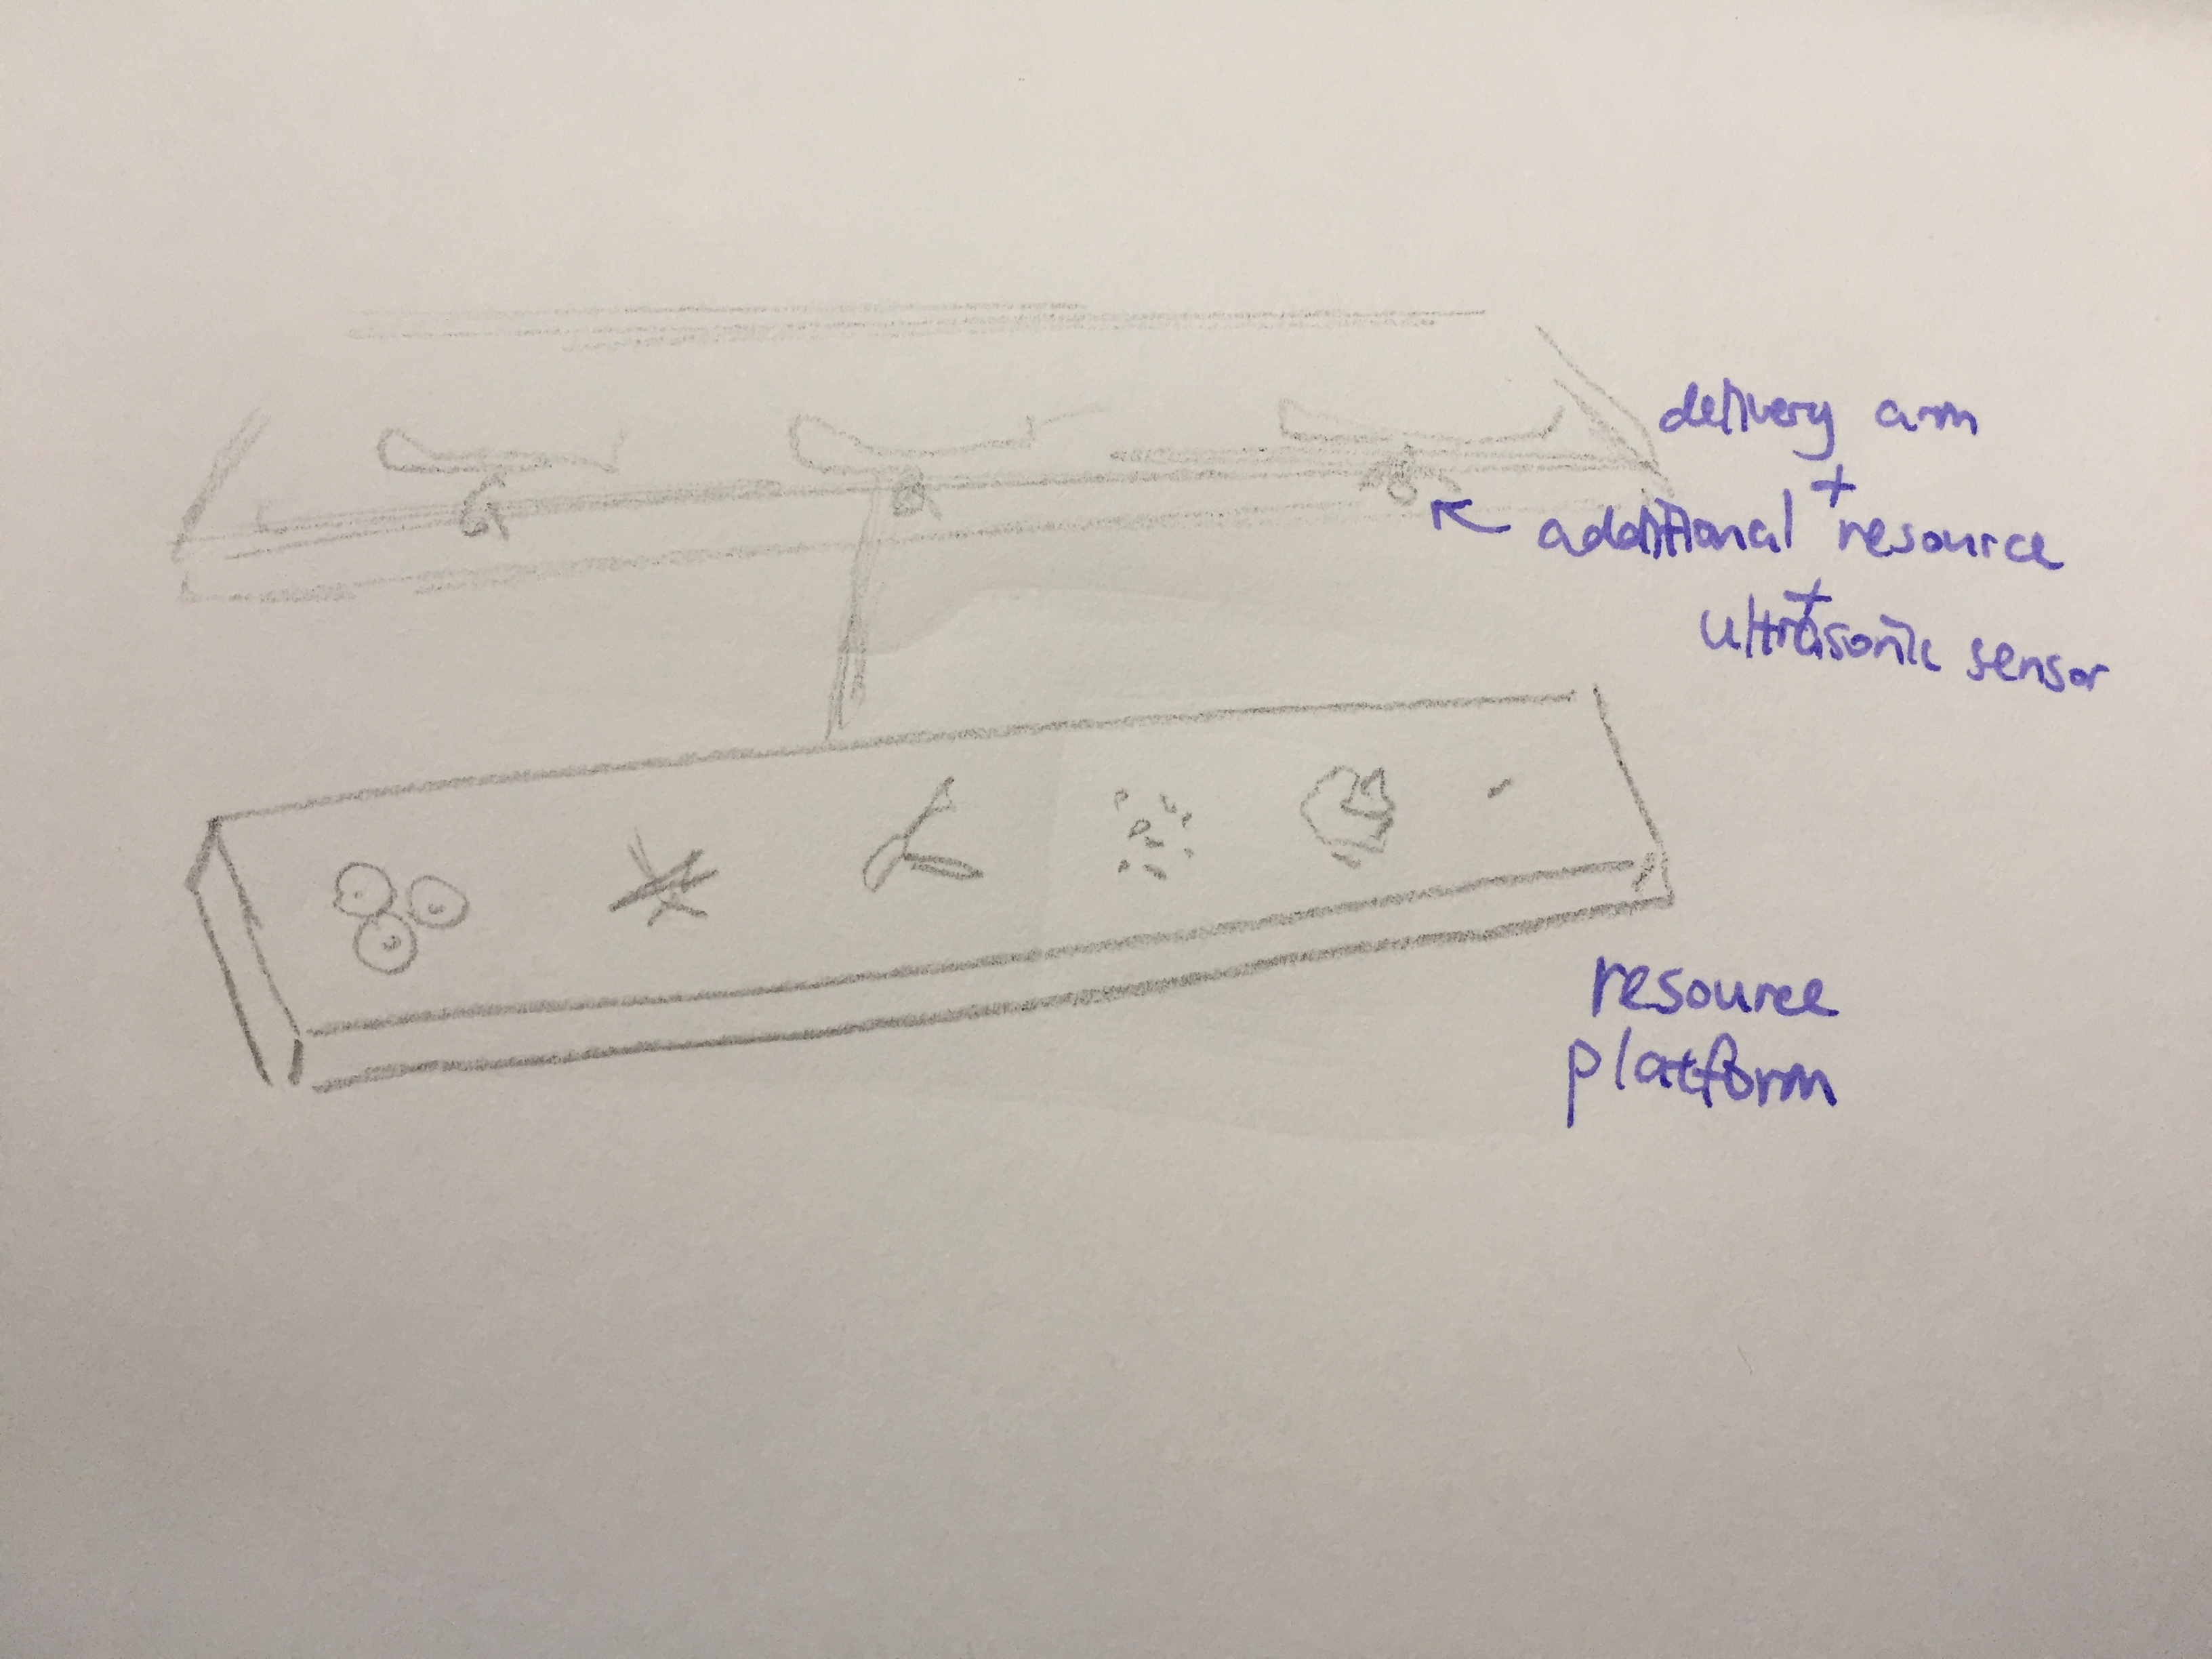 delivery arm
+
additional resource
+
ultrasonic sensor
resource
platform